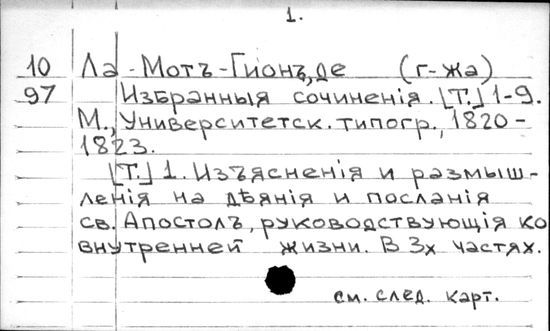 1.
10 Ла-Мотъ-Гионъ, де (г-жа)
97 Избранныя сочиненія. [Т.] 1-9.
М., Университетск. типогр., 1820-
1823.
[Т.] 1. Изъясненія и размыш-
ленія на дѣянія и посланія
св. Апостолъ, руководствующія ко
внутренней жизни. В 3х частях.
см. след. карт.